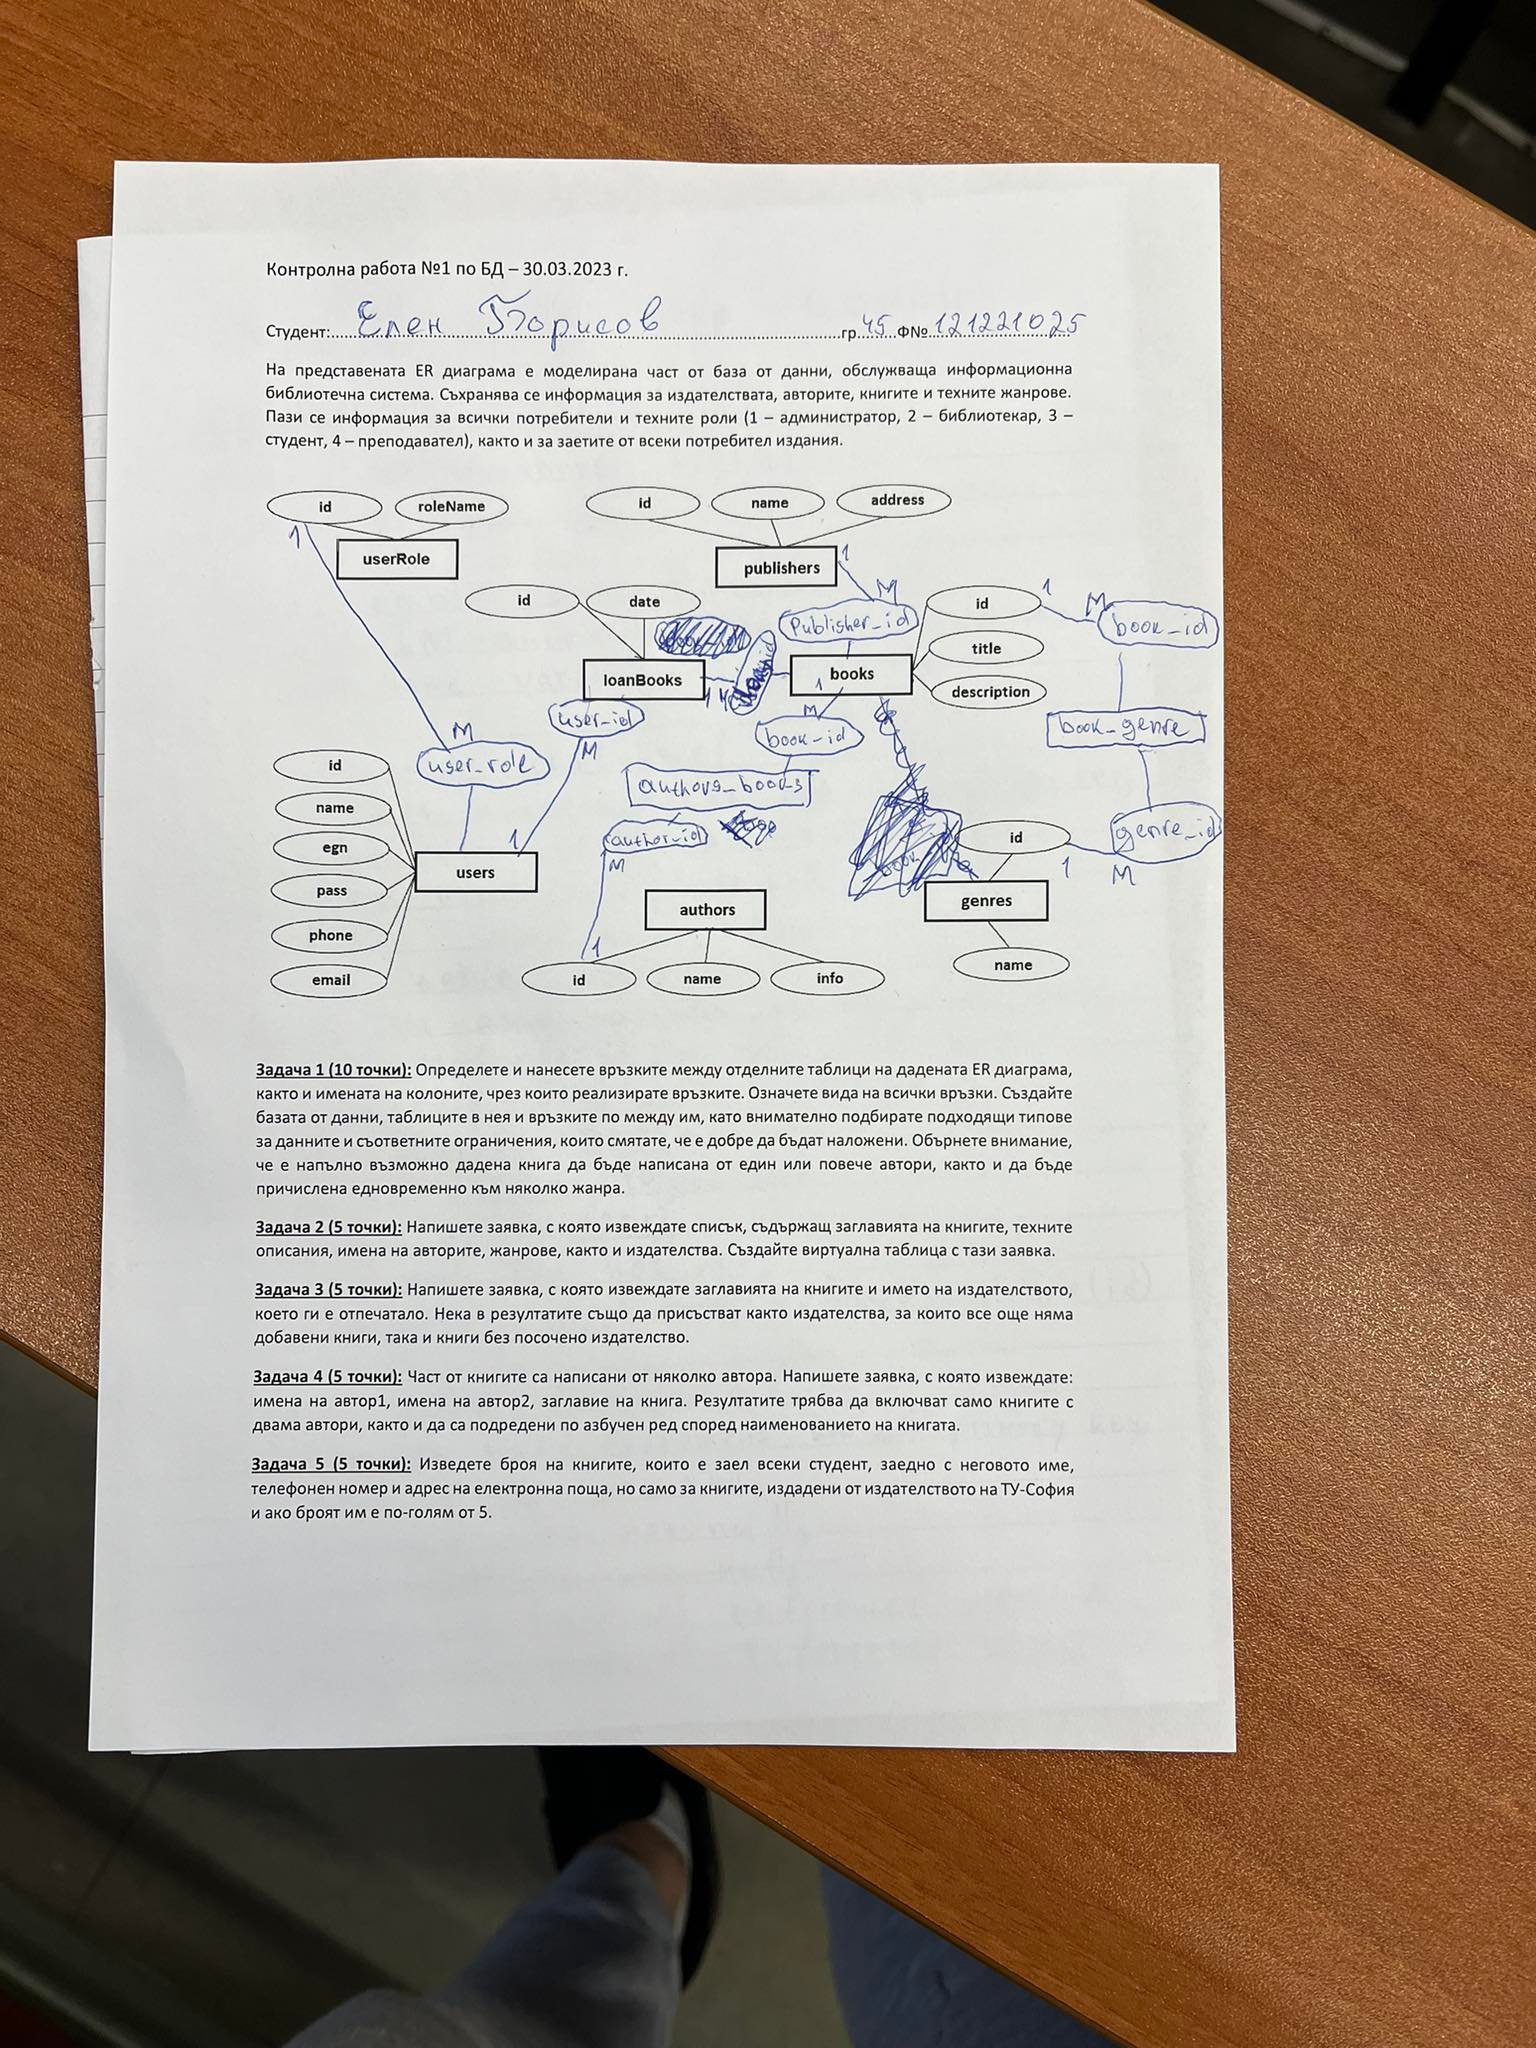 Контролна работа №1 по БД – 30.03.2023 г.
Студент: Елен Борисов гр 45 Ф№ 121221025
На представената ER диаграма е моделирана част от база от данни, обслужваща информационна
библиотечна система. Съхранява се информация за издателствата, авторите, книгите и техните жанрове.
Пази се информация за всички потребители и техните роли (1 – администратор, 2 – библиотекар, 3 –
студент, 4 – преподавател), както и за заетите от всеки потребител издания.
id roleName id name address
1 userRole publishers 1
id date M id 1 M
Publisher_id book_id
title
loanBooks books 1
description
user_id M book_id book_genre
M M
id user_role authors_books
name author_id id genre_id
egn 1 M 1 M
pass users
phone authors genres
1
email id name info name
Задача 1 (10 точки): Определете и нанесете връзките между отделните таблици на дадената ER диаграма,
както и имената на колоните, чрез които реализирате връзките. Означете вида на всички връзки. Създайте
базата от данни, таблиците в нея и връзките по между им, като внимателно подбирате подходящи типове
за данните и съответните ограничения, които смятате, че е добре да бъдат наложени. Обърнете внимание,
че е напълно възможно дадена книга да бъде написана от един или повече автори, както и да бъде
причислена едновременно към няколко жанра.
Задача 2 (5 точки): Напишете заявка, с която извеждате списък, съдържащ заглавията на книгите, техните
описания, имена на авторите, жанрове, както и издателства. Създайте виртуална таблица с тази заявка.
Задача 3 (5 точки): Напишете заявка, с която извеждате заглавията на книгите и името на издателството,
което ги е отпечатало. Нека в резултатите също да присъстват както издателства, за които все още няма
добавени книги, така и книги без посочено издателство.
Задача 4 (5 точки): Част от книгите са написани от няколко автора. Напишете заявка, с която извеждате:
имена на автор1, имена на автор2, заглавие на книга. Резултатите трябва да включват само книгите с
двама автори, както и да са подредени по азбучен ред според наименованието на книгата.
Задача 5 (5 точки): Изведете броя на книгите, които е заел всеки студент, заедно с неговото име,
телефонен номер и адрес на електронна поща, но само за книгите, издадени от издателството на ТУ-София
и ако броят им е по-голям от 5.